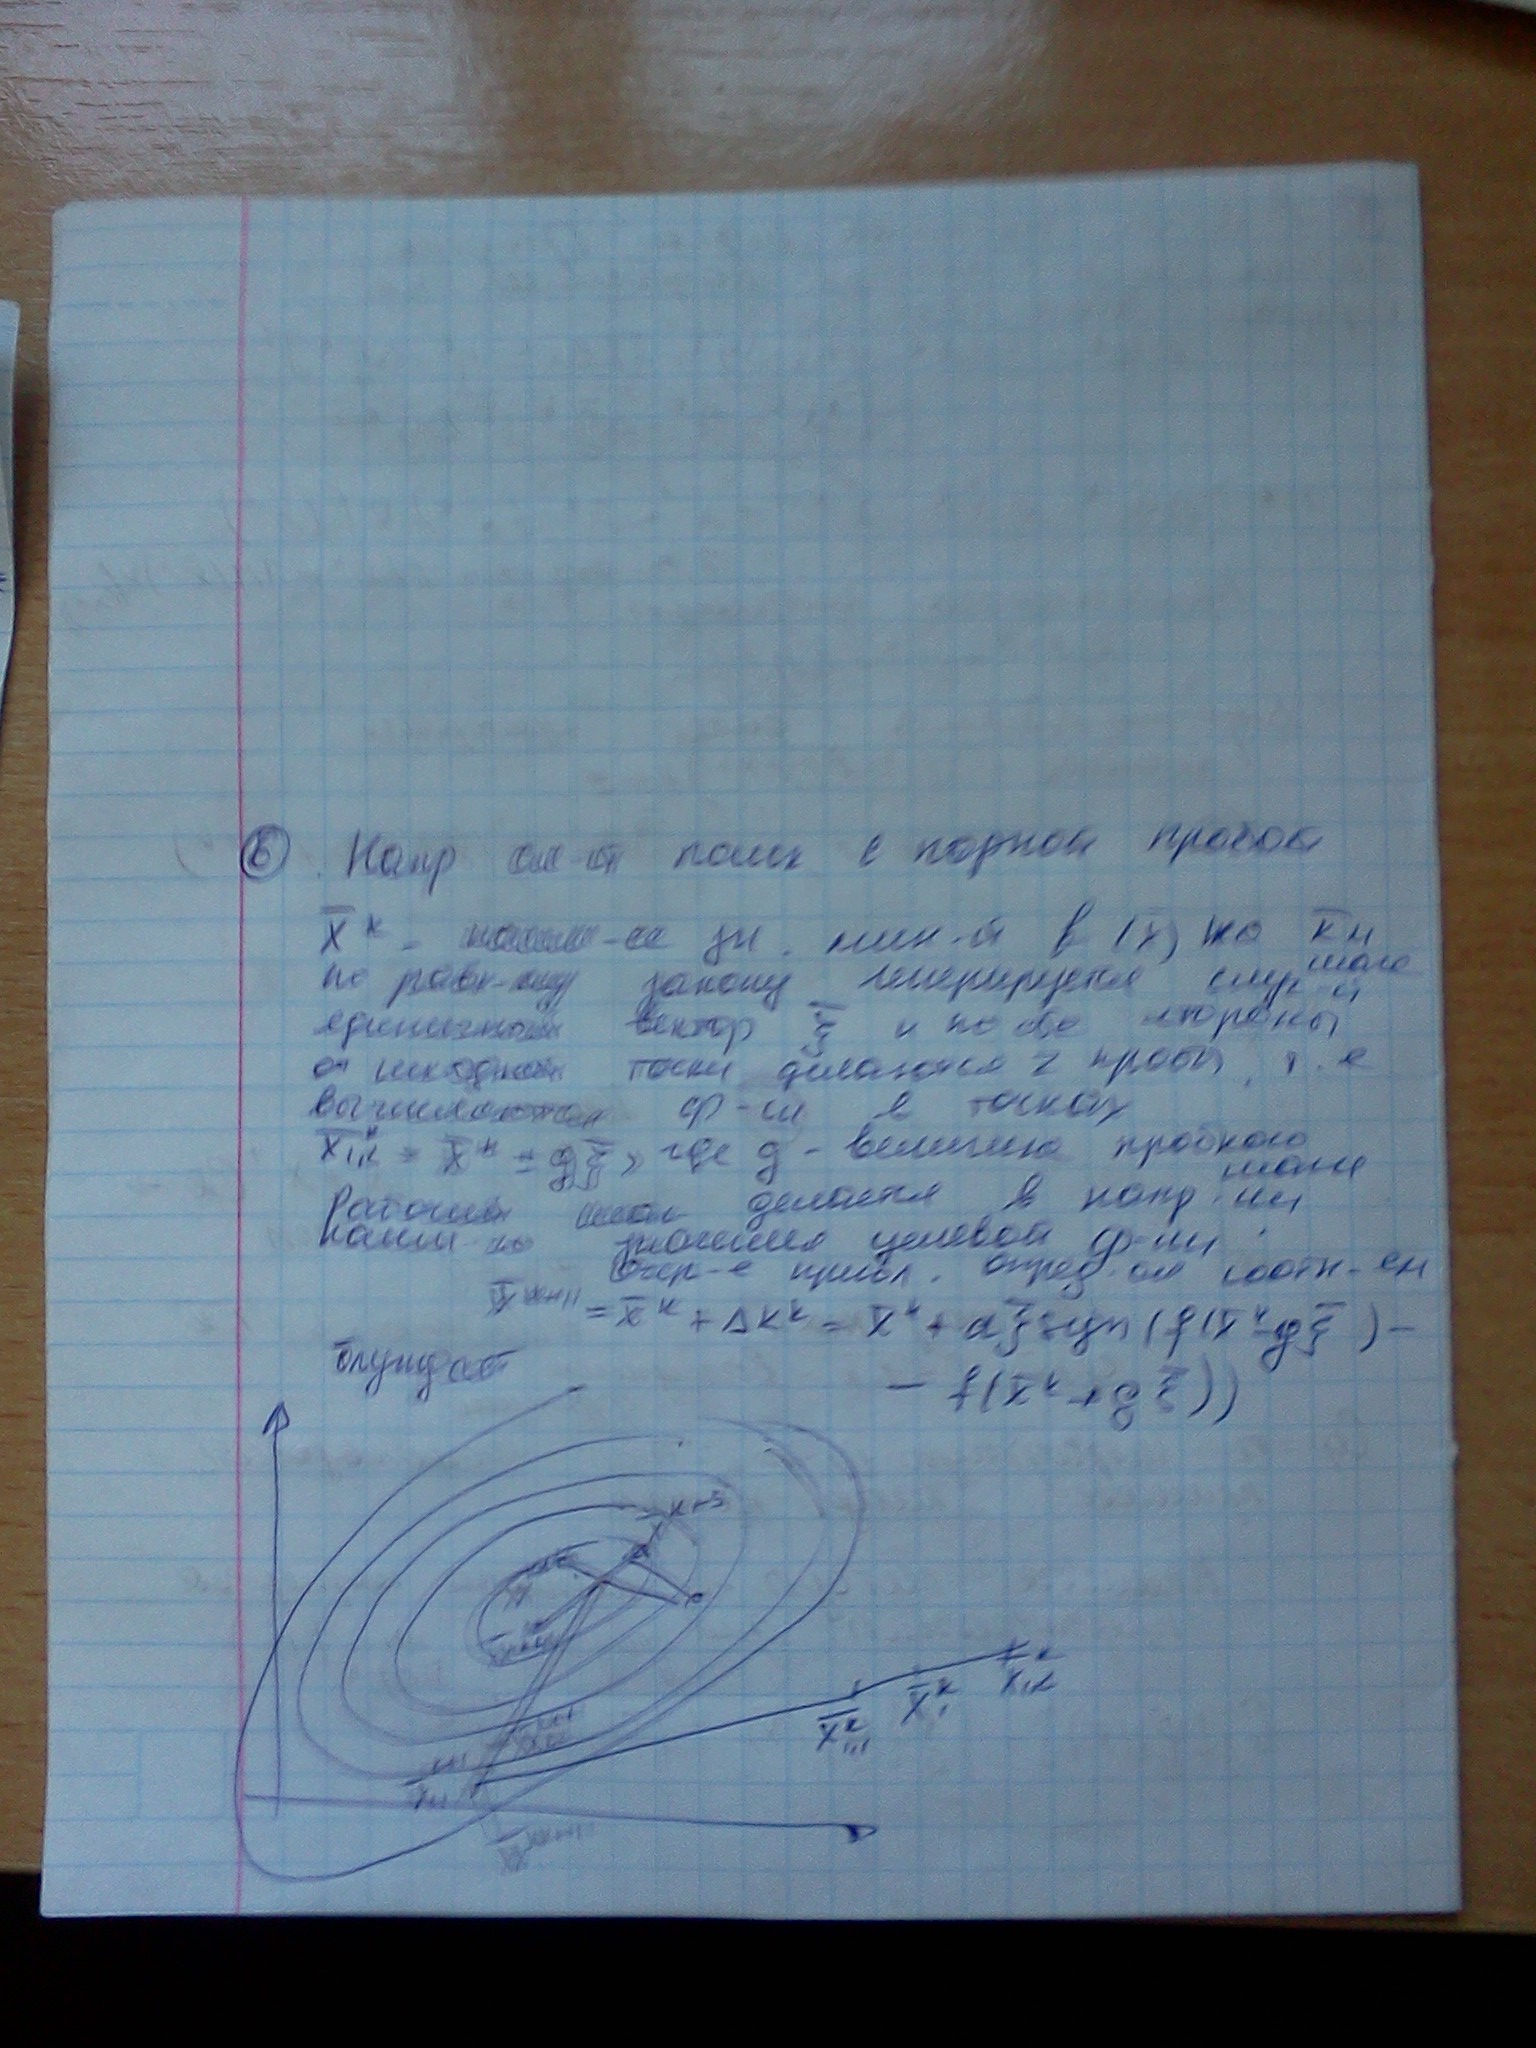 б Напр сл-й поиск с парной пробой
X̄ᵏ - зн. мин-й в f(x̄) на k-м
шаге
по равн-му закону генерируется случ-й
единичный вектор ξ̄ и по обе стороны
от исходной точки делаются 2 пробы, т.е
вычисляются ф-ии в точках
X̄ᵏ₁,₂ = X̄ᵏ ± gξ̄, где g - величина пробного
шага
Рабочий шаг делается в напр-ии
наим-го значения целевой ф-ии.
Очер-е прибл. опред-ся соотн-ем
X̄ᵏ⁺¹ = X̄ᵏ + ΔXᵏ = X̄ᵏ + aξ̄ sign (f(X̄ᵏ - gξ̄) -
- f(X̄ᵏ + gξ̄))
блуждает
X̄ᵏ⁺³
X̄ᵏ₁,₁
X̄ᵏ₁
X̄ᵏ₁,₂